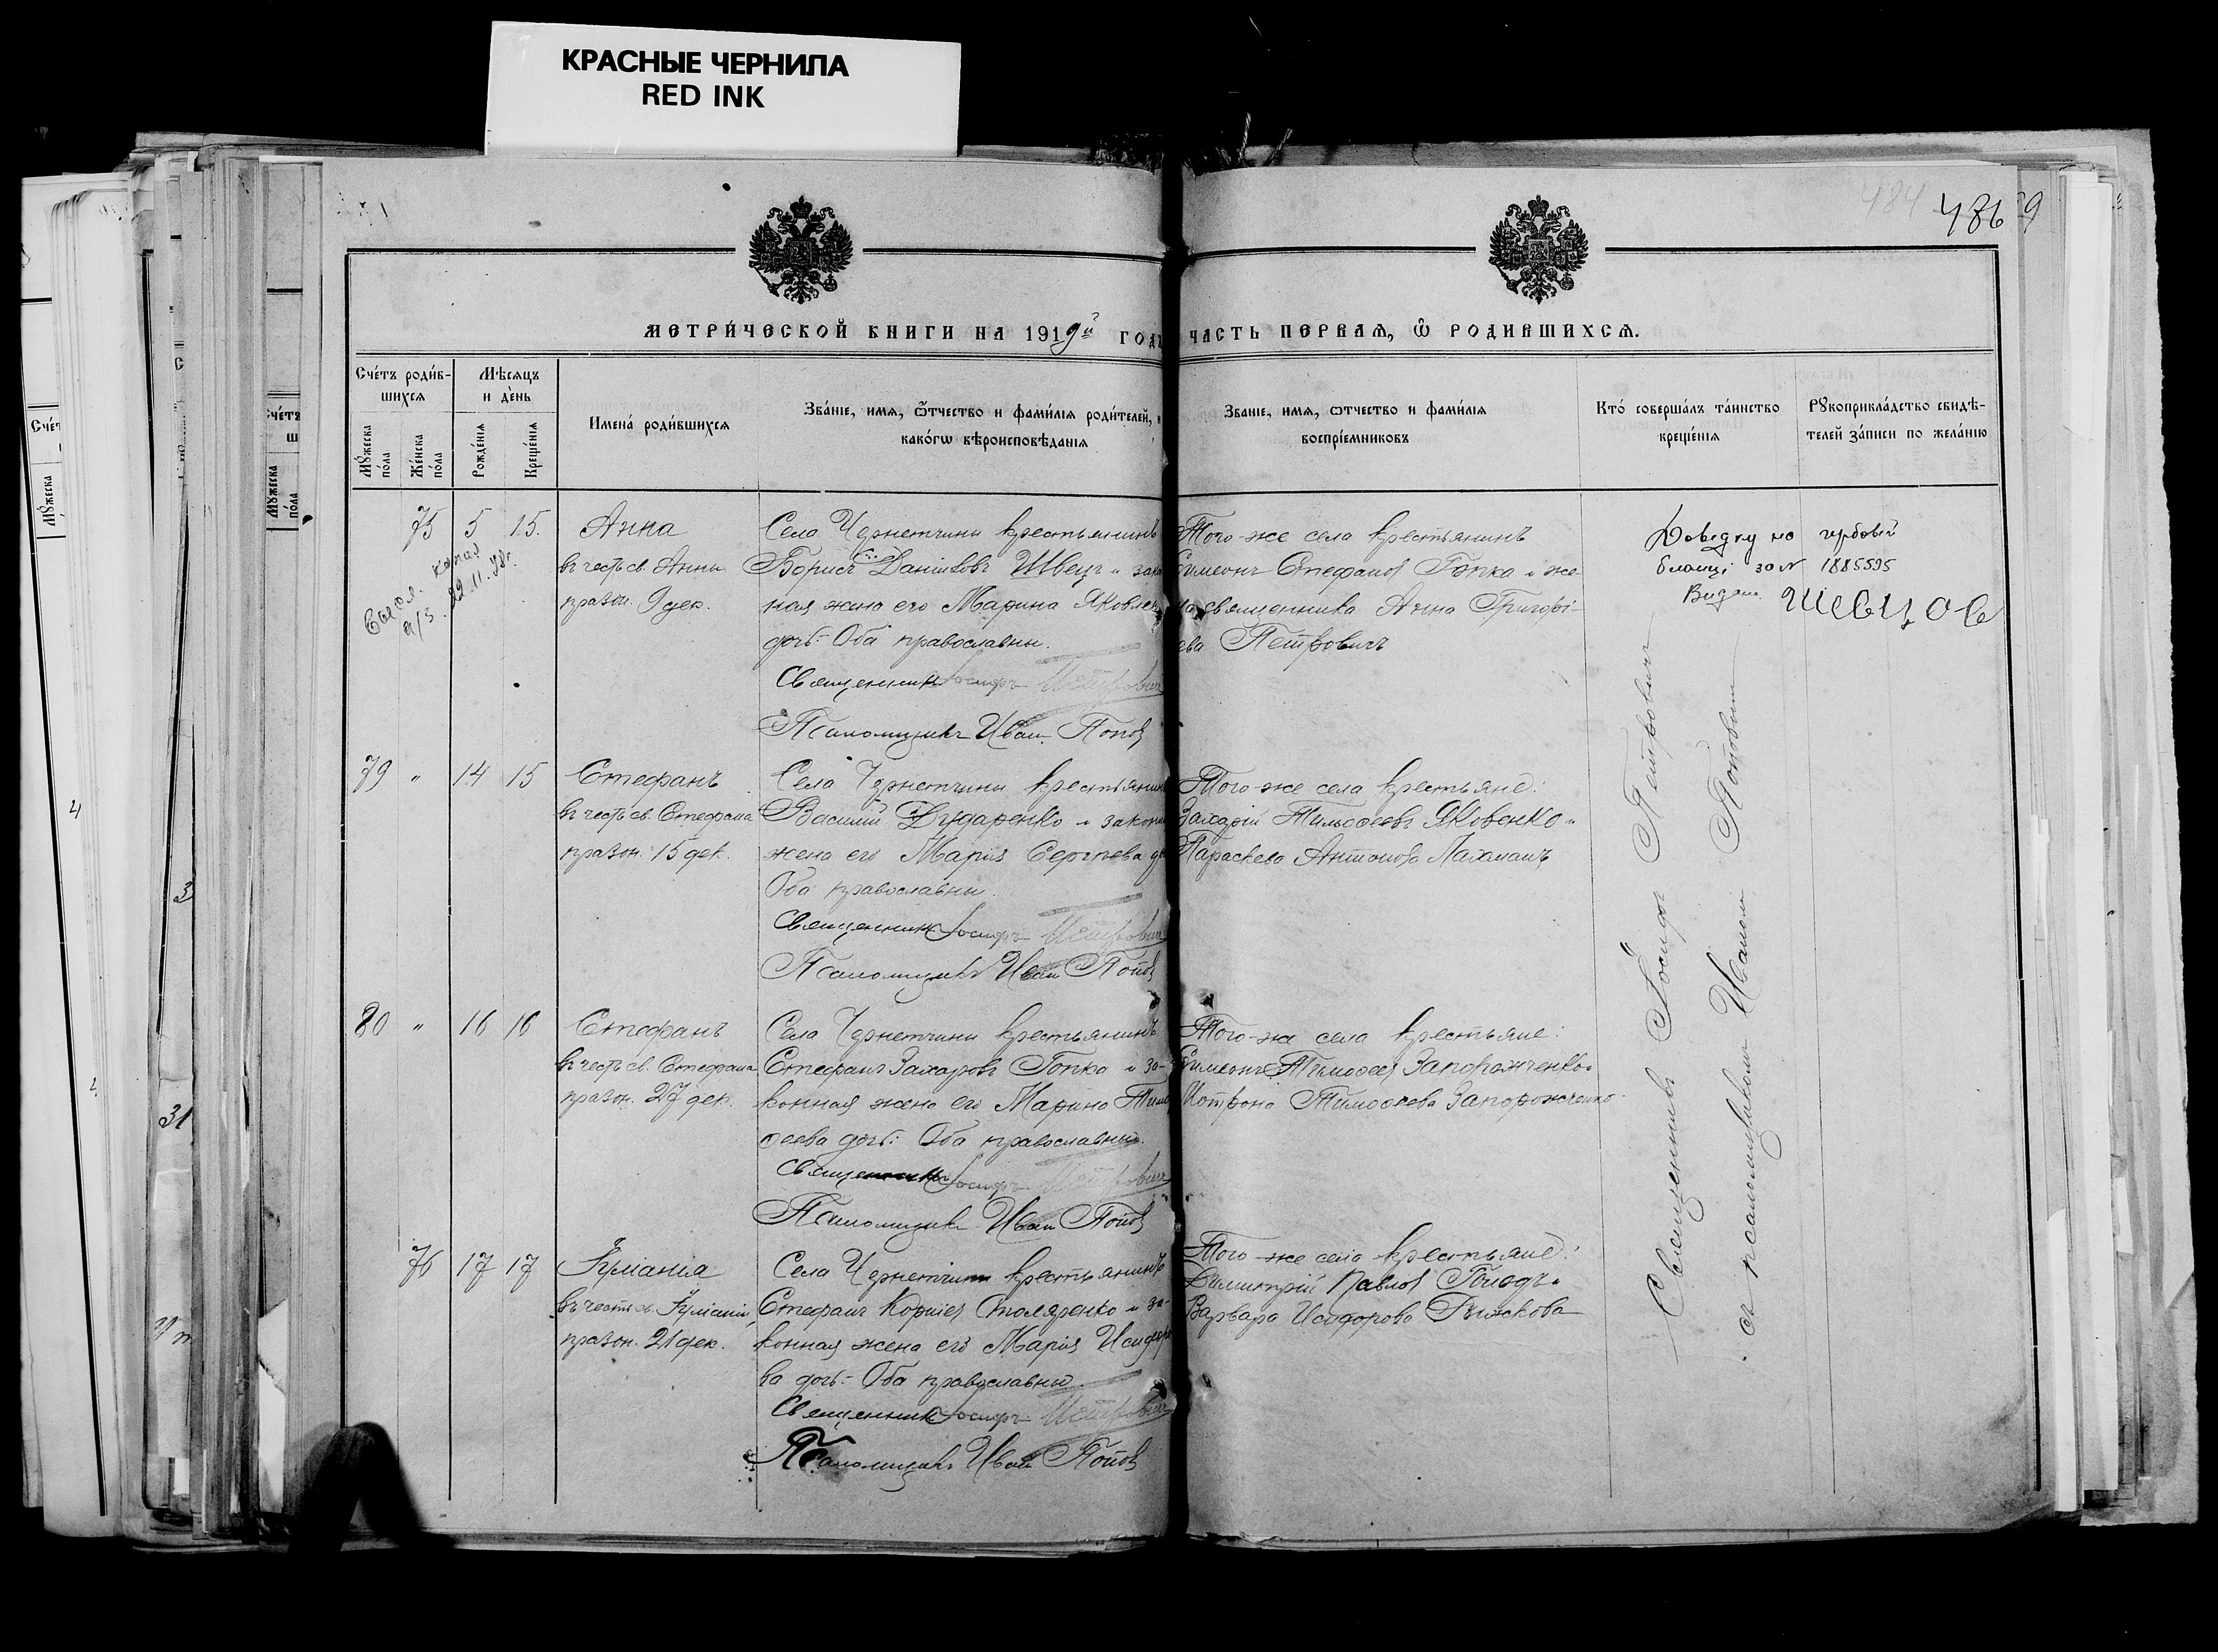 КРАСНЫЕ ЧЕРНИЛА
RED INK
484
486
9
МЕТРИ́ЧЕСКОЙ КНИГИ НА 1919й ГОДЪ
ЧАСТЬ ПЕРВАѦ, Ѡ РОДИВШИХСѦ.
Счéтъ роди́в-
шихсѧ
Мѣсѧцъ
и де́нь
Мꙋ́жеска по́ла
Же́нска по́ла
Рожде́нїѧ
Креще́нїѧ
Имена̀ роди́вшихсѧ
Зва́нїе, имѧ, ѻ́тчество и фами́лїѧ роди́телей, и
како́гѡ вѣроисповѣ́данїѧ
Званїе, имѧ, ѻтчество и фами́лїѧ
воспрїемниковъ
Кто́ соверша́лъ та́инство
креще́нїѧ
Рꙋкоприкла́дство свидѣ́-
телей за́писи по жела́нїю
75 5 15. Анна
въ честь св. Анны
празон. 9 дек.
Села Чернетчины крестьянинъ
Борисъ Даниловъ Швецъ и зако
ная жена его Марина Яковлев
дочь:- Оба православны.
Священникъ Іосифъ Петровичъ
Псаломщикъ Иван Попов
Того-же села крестьянинъ
Симеонъ Стефанов Гопка и же
на священника Анна Григорі-
ева Петровичъ
Довідку на гербовій
бланці за № 1885595
Видан. Шевцов
79 " 14 15 Стефанъ
въ честь св. Стефана
празон. 15 дек.
Села Чернетчины крестьянинъ
Василій Дударенко и законн
жена его Марія Сергѣева до
Оба православны.
Священникъ Іосифъ Петровичъ
Псаломщикъ Иван Попов
Того-же села крестьяне:
Захарій Тимоѳеевъ Яковенко и
Параскева Антонова
80 " 16 16 Стефанъ
въ честь св. Стефана
празон. 27 дек.
Села Чернетчины крестьянинъ
Стефанъ Захаровъ Гопка и за-
конная жена его Марина Тимо
ѳеева дочь: Оба православны.
Священникъ Іосифъ Петровичъ
Псаломщикъ Иван Попов
Того-же села крестьяне:
Симеонъ Тимоѳеев Запорожченко и
Матрона Тимоѳеева Запорожченко
76 17 17 Іуліанія
въ честь св. Іуліаніи,
празон. 21 дек.
Села Чернетчины крестьянинъ
Стефанъ Корнеев Столяренко и за-
конная жена его Марія Исидоро
ва дочь:- Оба православны.
Священникъ Іосифъ Петровичъ
Псаломщикъ Иван Попов
Того-же села крестьяне:
Димитрій Павлов и
Варвара Исидорова Рыжкова
Священникъ Іосифъ Петровичъ
съ псаломщикомъ Иваномъ Поповымъ